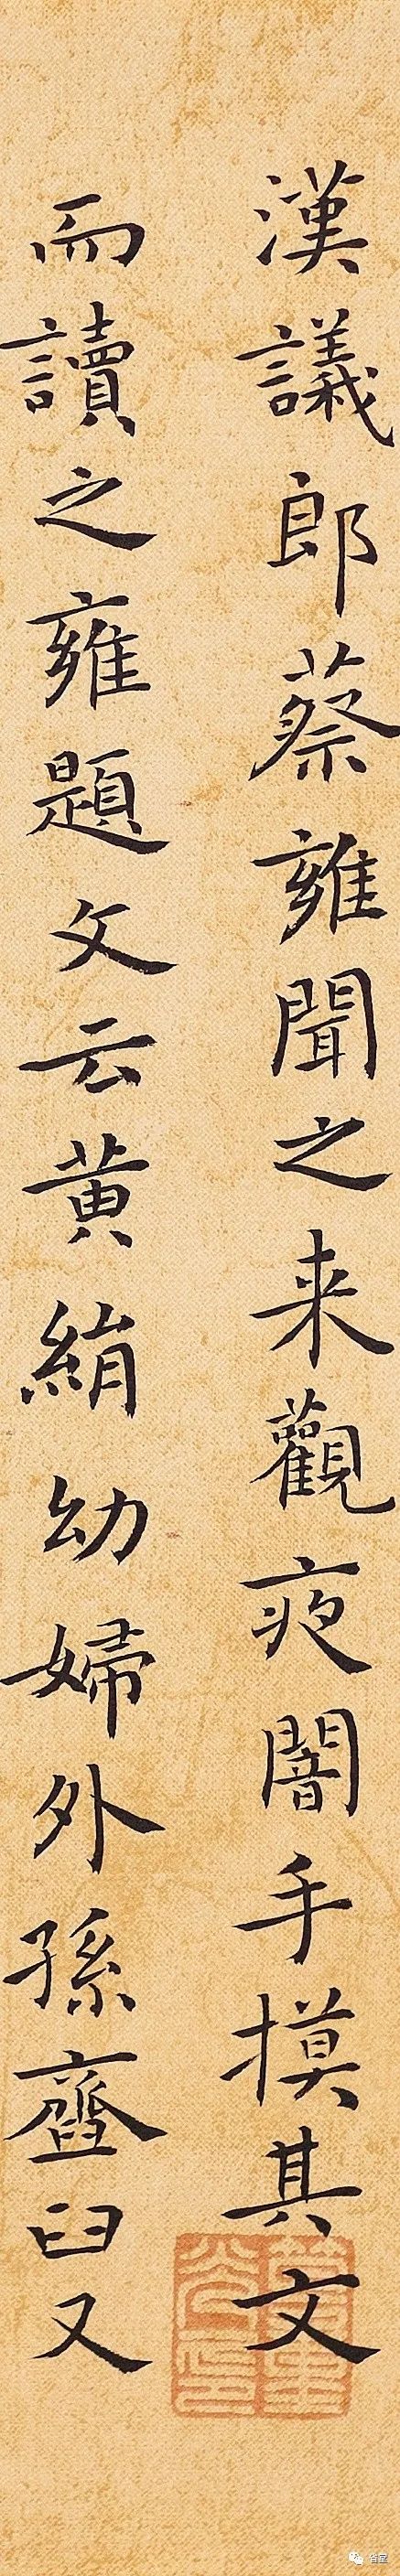 漢議郎蔡雍聞之来觀夜闇手摸其文
而讀之雍題文云黄絹幼婦外孫齏臼又